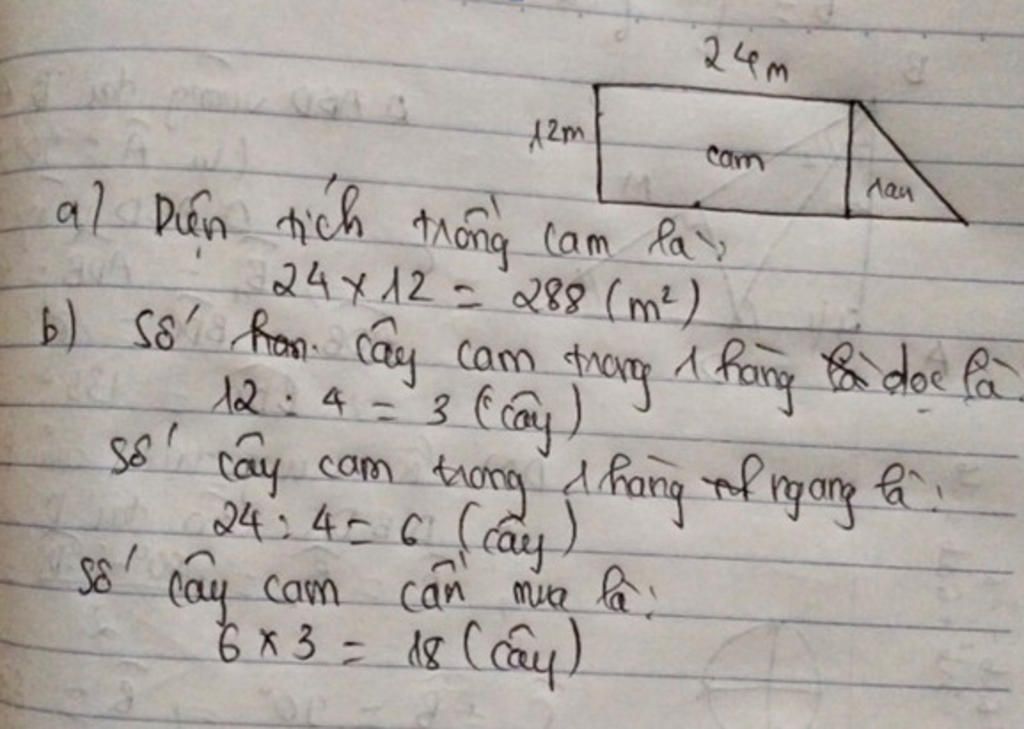 24m
12m
cam
rau
a) Diện tích trồng cam là:
24 x 12 = 288 (m²)
b) Số cây cam trong 1 hàng dọc là
12 : 4 = 3 (cây)
Số cây cam trong 1 hàng ngang là:
24 : 4 = 6 (cây)
Số cây cam cần mua là:
6 x 3 = 18 (cây)